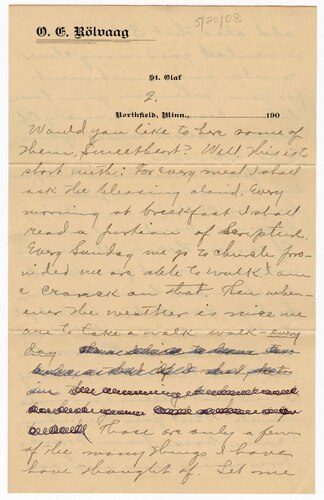 5/20/08
O. E. Rölvaag
St. Olaf
2.
Northfield, Minn., 190
Would you like to here some of
them, Sweetheart? Well. This is to
start with: For every meal I shall
ask the blessing aloud. Every
morning at breakfast I shall
read a portion of Scripture.
Every Sunday we go to church pro-
vided we are able to walk. I am
a cranck on that. Then when-
ever the weather is nice we
are to take a walk walk - every
day.
Those are only a few
of the many things I have
have thought of. Let me